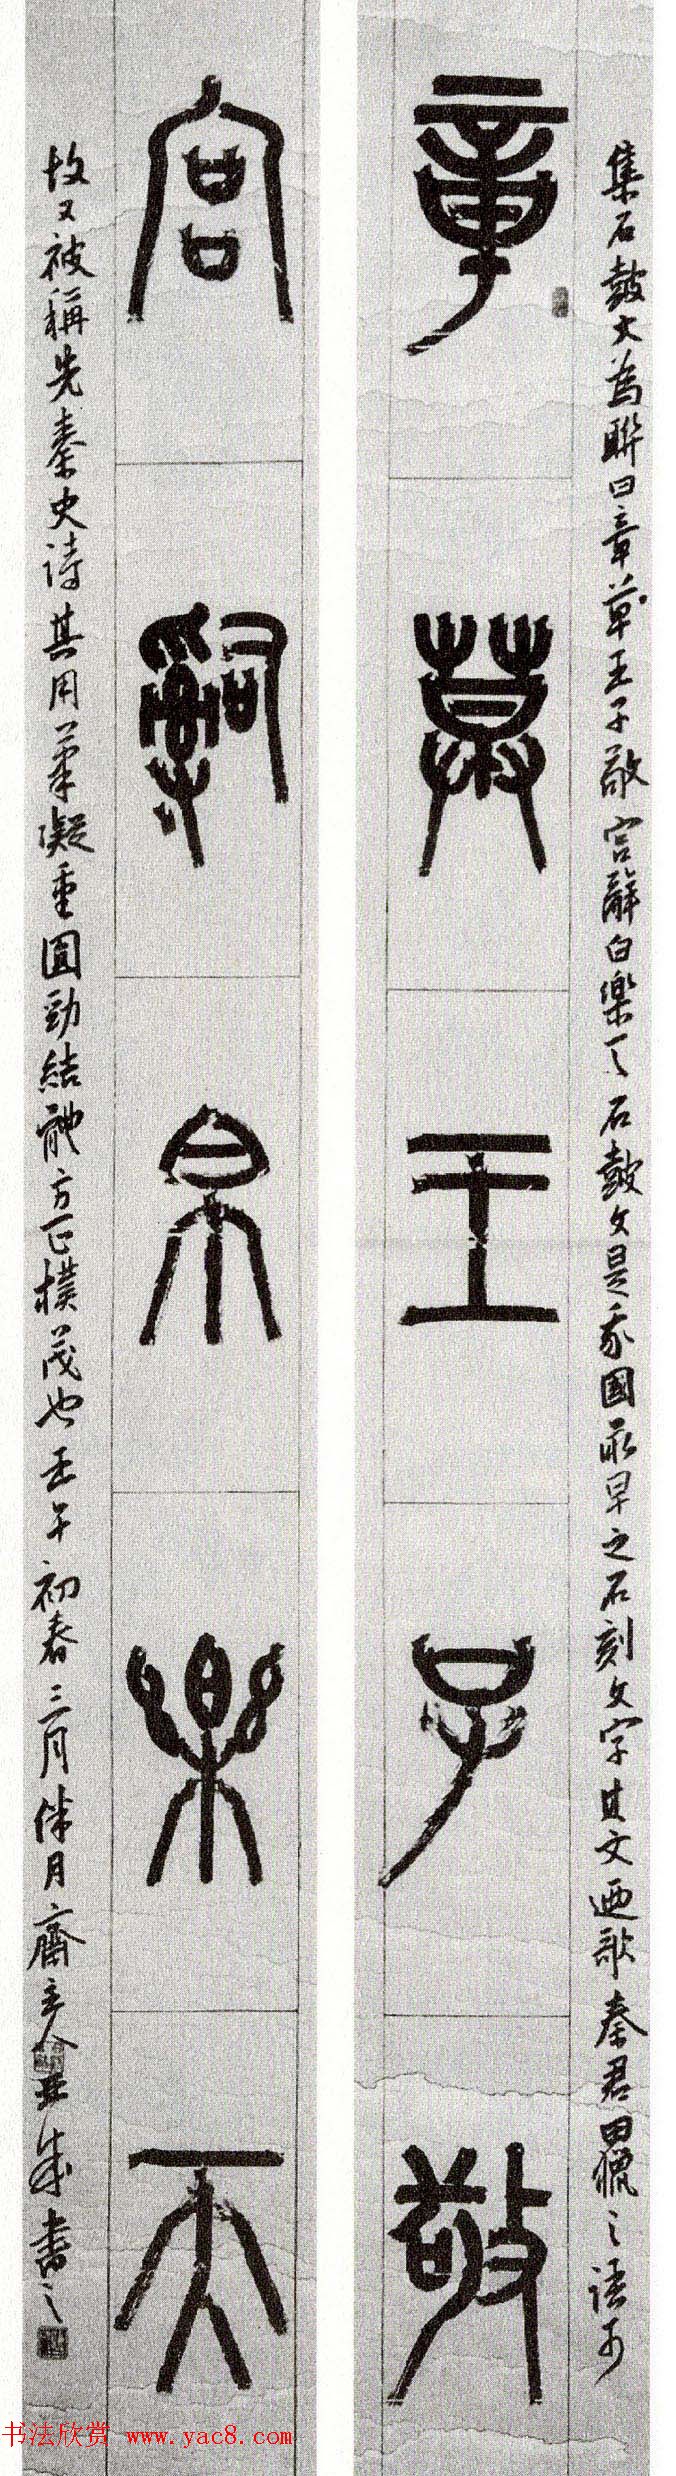 章草王子敬
宫辞白乐天
集石鼓文為聯曰章草王子敬宫辭白樂天石鼓文是我國最早之石刻文字其文迺歌秦君田獵之語
故又被稱先秦史詩其用筆凝重圓勁結體方正樸茂也壬午初春三月伴月齋主人亞成書之
书法欣赏 www.yac8.com